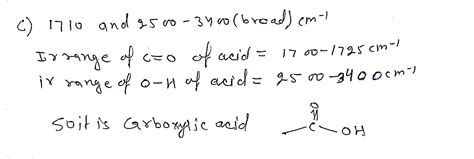 c) 1710 and 2500 - 3400 (broad) cm⁻¹
Ir range of c=o of acid = 1700-1725 cm⁻¹
ir range of O-H of acid = 2500-3400cm⁻¹
O
So it is Carboxylic acid -C-OH